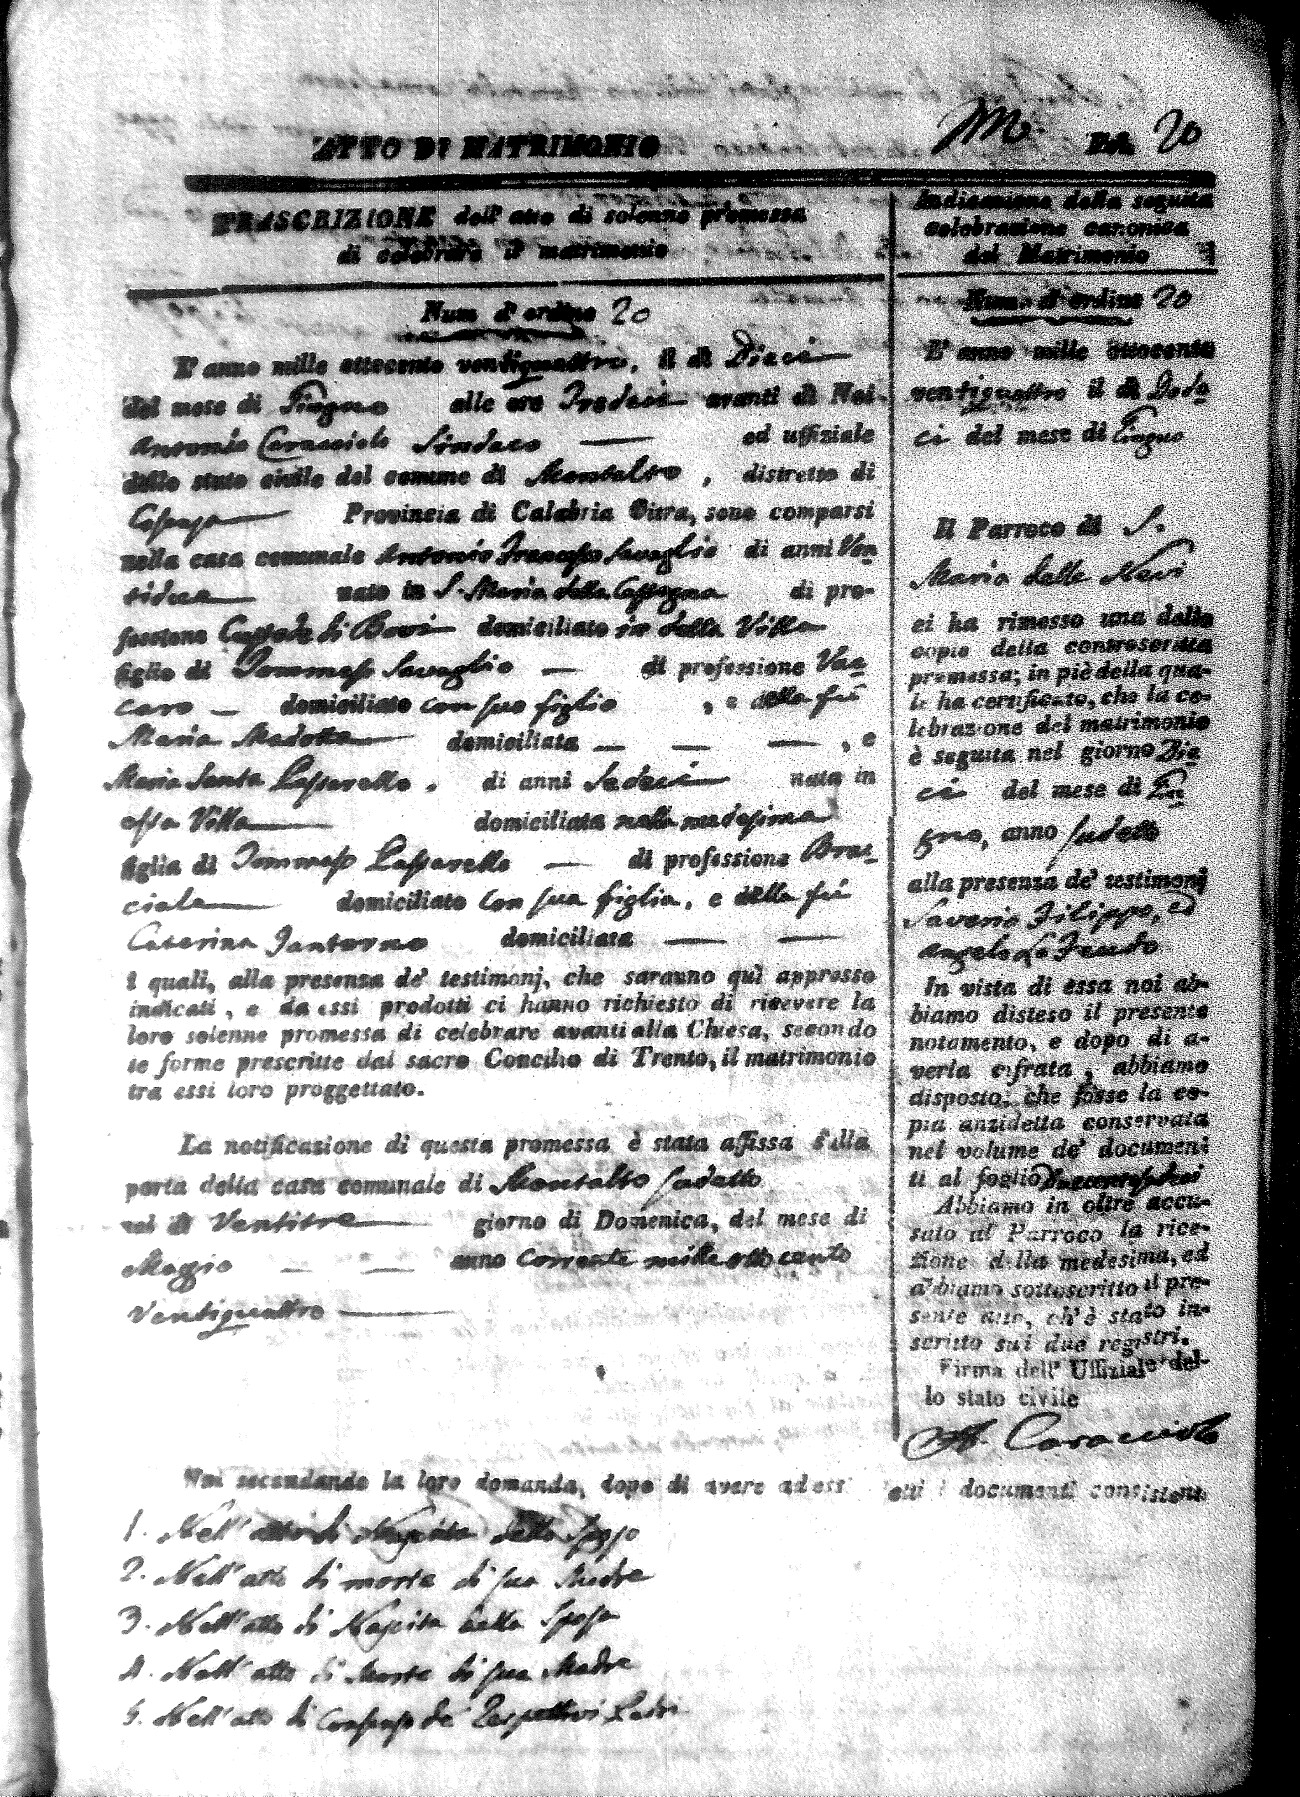 ATTO DI MATRIMONIO
Fol. 20
TRASCRIZIONE dell' atto di solenne promessa
di celebrare il matrimonio
Num d'ordine 20
L' anno mille ottecento ventiquattro, il di Dieci
del mese di Giugno alle ore Tredeci avanti di Noi
Antonio Caracciolo Sindaco ed uffiziale
dello stato civile del comune di Montalto, distretto di
Cosenza Provincia di Calabria Citra, sono comparsi
nella casa comunale Antonio Francesco Savaglio di anni Ven
tidue nato in S. Maria della Castagna di pro-
fessione Custode di Bovi domiciliato in detta Villa
figlio di Tommaso Savaglio di professione Vac
caro domiciliato con suo figlio, e della fù
Maria domiciliata — — —, e
Maria Santa Passarello, di anni Sedeci nata in
essa Villa domiciliata nella medesima
figlia di Tommaso Passarello — di professione Brac
ciale domiciliato con sua figlia, e della fù
Caterina domiciliata — —
i quali, alla presenza de' testimonj, che saranno quì appresso
indicati, e da essi prodotti ci hanno richiesto di ricevere la
loro solenne promessa di celebrare avanti alla Chiesa, secondo
le forme prescritte dal sacro Concilio di Trento, il matrimonio
tra essi loro proggettato.
La notificazione di questa promessa è stata affissa sulla
porta della casa comunale di Montalto sudetto
nel dì Ventitre giorno di Domenica, del mese di
Maggio — — anno corrente mille otto cento
ventiquattro
Noi secondando la loro domanda, dopo di avere ad essi letti i documenti consistenti
1. Nell' atto di Nascita dello Sposo
2. Nell' atto di morte di sua Madre
3. Nell' atto di Nascita della Sposa
4. Nell' atto di Morte di sua Madre
5. Nell' atto di Consenso de' rispettivi Padri
Indicazione della seguita
celebrazione canonica
del Matrimonio
Num d'ordine 20
L' anno mille ottocento
ventiquattro il di Dode
ci del mese di Giugno
Il Parroco di S.
Maria delle Nevi
ci ha rimesso una della
copie della controscritta
promessa; in piè della qua-
le ha certificato, che la ce-
lebrazione del matrimonio
è seguita nel giorno Die
ci del mese di Giu
gno, anno sudetto
alla presenza de' testimonj
Saverio Filippo, ed
Angelo Lo Feudo
In vista di essa noi ab-
biamo disteso il presente
notamento, e dopo di a-
verla cifrata, abbiamo
disposto, che fosse la co-
pia anzidetta conservata
nel volume de' documen
ti al foglio
Abbiamo in oltre accu-
sato al Parroco la rice-
zione della medesima, ed
abbiamo sottoscritto il pre-
sente atto, ch' è stato in-
scritto sui due registri.
Firma dell' Uffiziale del-
lo stato civile
A. Caracciolo